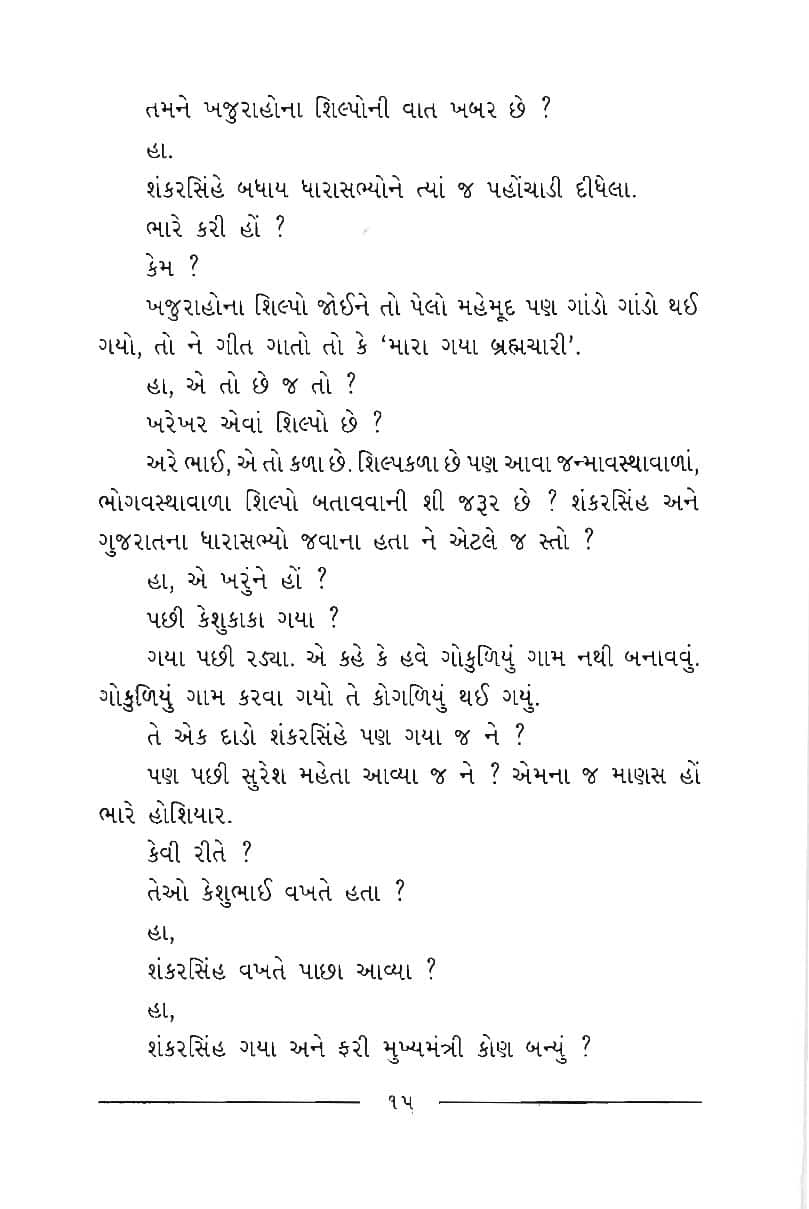 તમને ખજુરાહોના શિલ્પોની વાત ખબર છે ?
હા.
શંકરસિંહે બધાય ધારાસભ્યોને ત્યાં જ પહોંચાડી દીધેલા.
ભારે કરી હોં ?
કેમ ?
ખજુરાહોના શિલ્પો જોઈને તો પેલો મહેમૂદ પણ ગાંડો ગાંડો થઈ
ગયો, તો ને ગીત ગાતો તો કે ‘મારા ગયા બ્રહ્મચારી’.
હા, એ તો છે જ તો ?
ખરેખર એવાં શિલ્પો છે ?
અરે ભાઈ, એ તો કળા છે. શિલ્પકળા છે પણ આવા જન્માવસ્થાવાળાં,
ભોગવસ્થાવાળા શિલ્પો બતાવવાની શી જરૂર છે ? શંકરસિંહ અને
ગુજરાતના ધારાસભ્યો જવાના હતા ને એટલે જ સ્તો ?
હા, એ ખરુંને હોં ?
પછી કેશુકાકા ગયા ?
ગયા પછી રડ્યા. એ કહે કે હવે ગોકુળિયું ગામ નથી બનાવવું.
ગોકુળિયું ગામ કરવા ગયો તે કોગળિયું થઈ ગયું.
તે એક દાડો શંકરસિંહે પણ ગયા જ ને ?
પણ પછી સુરેશ મહેતા આવ્યા જ ને ? એમના જ માણસ હોં
ભારે હોશિયાર.
કેવી રીતે ?
તેઓ કેશુભાઈ વખતે હતા ?
હા,
શંકરસિંહ વખતે પાછા આવ્યા ?
હા,
શંકરસિંહ ગયા અને ફરી મુખ્યમંત્રી કોણ બન્યું ?
૧૫